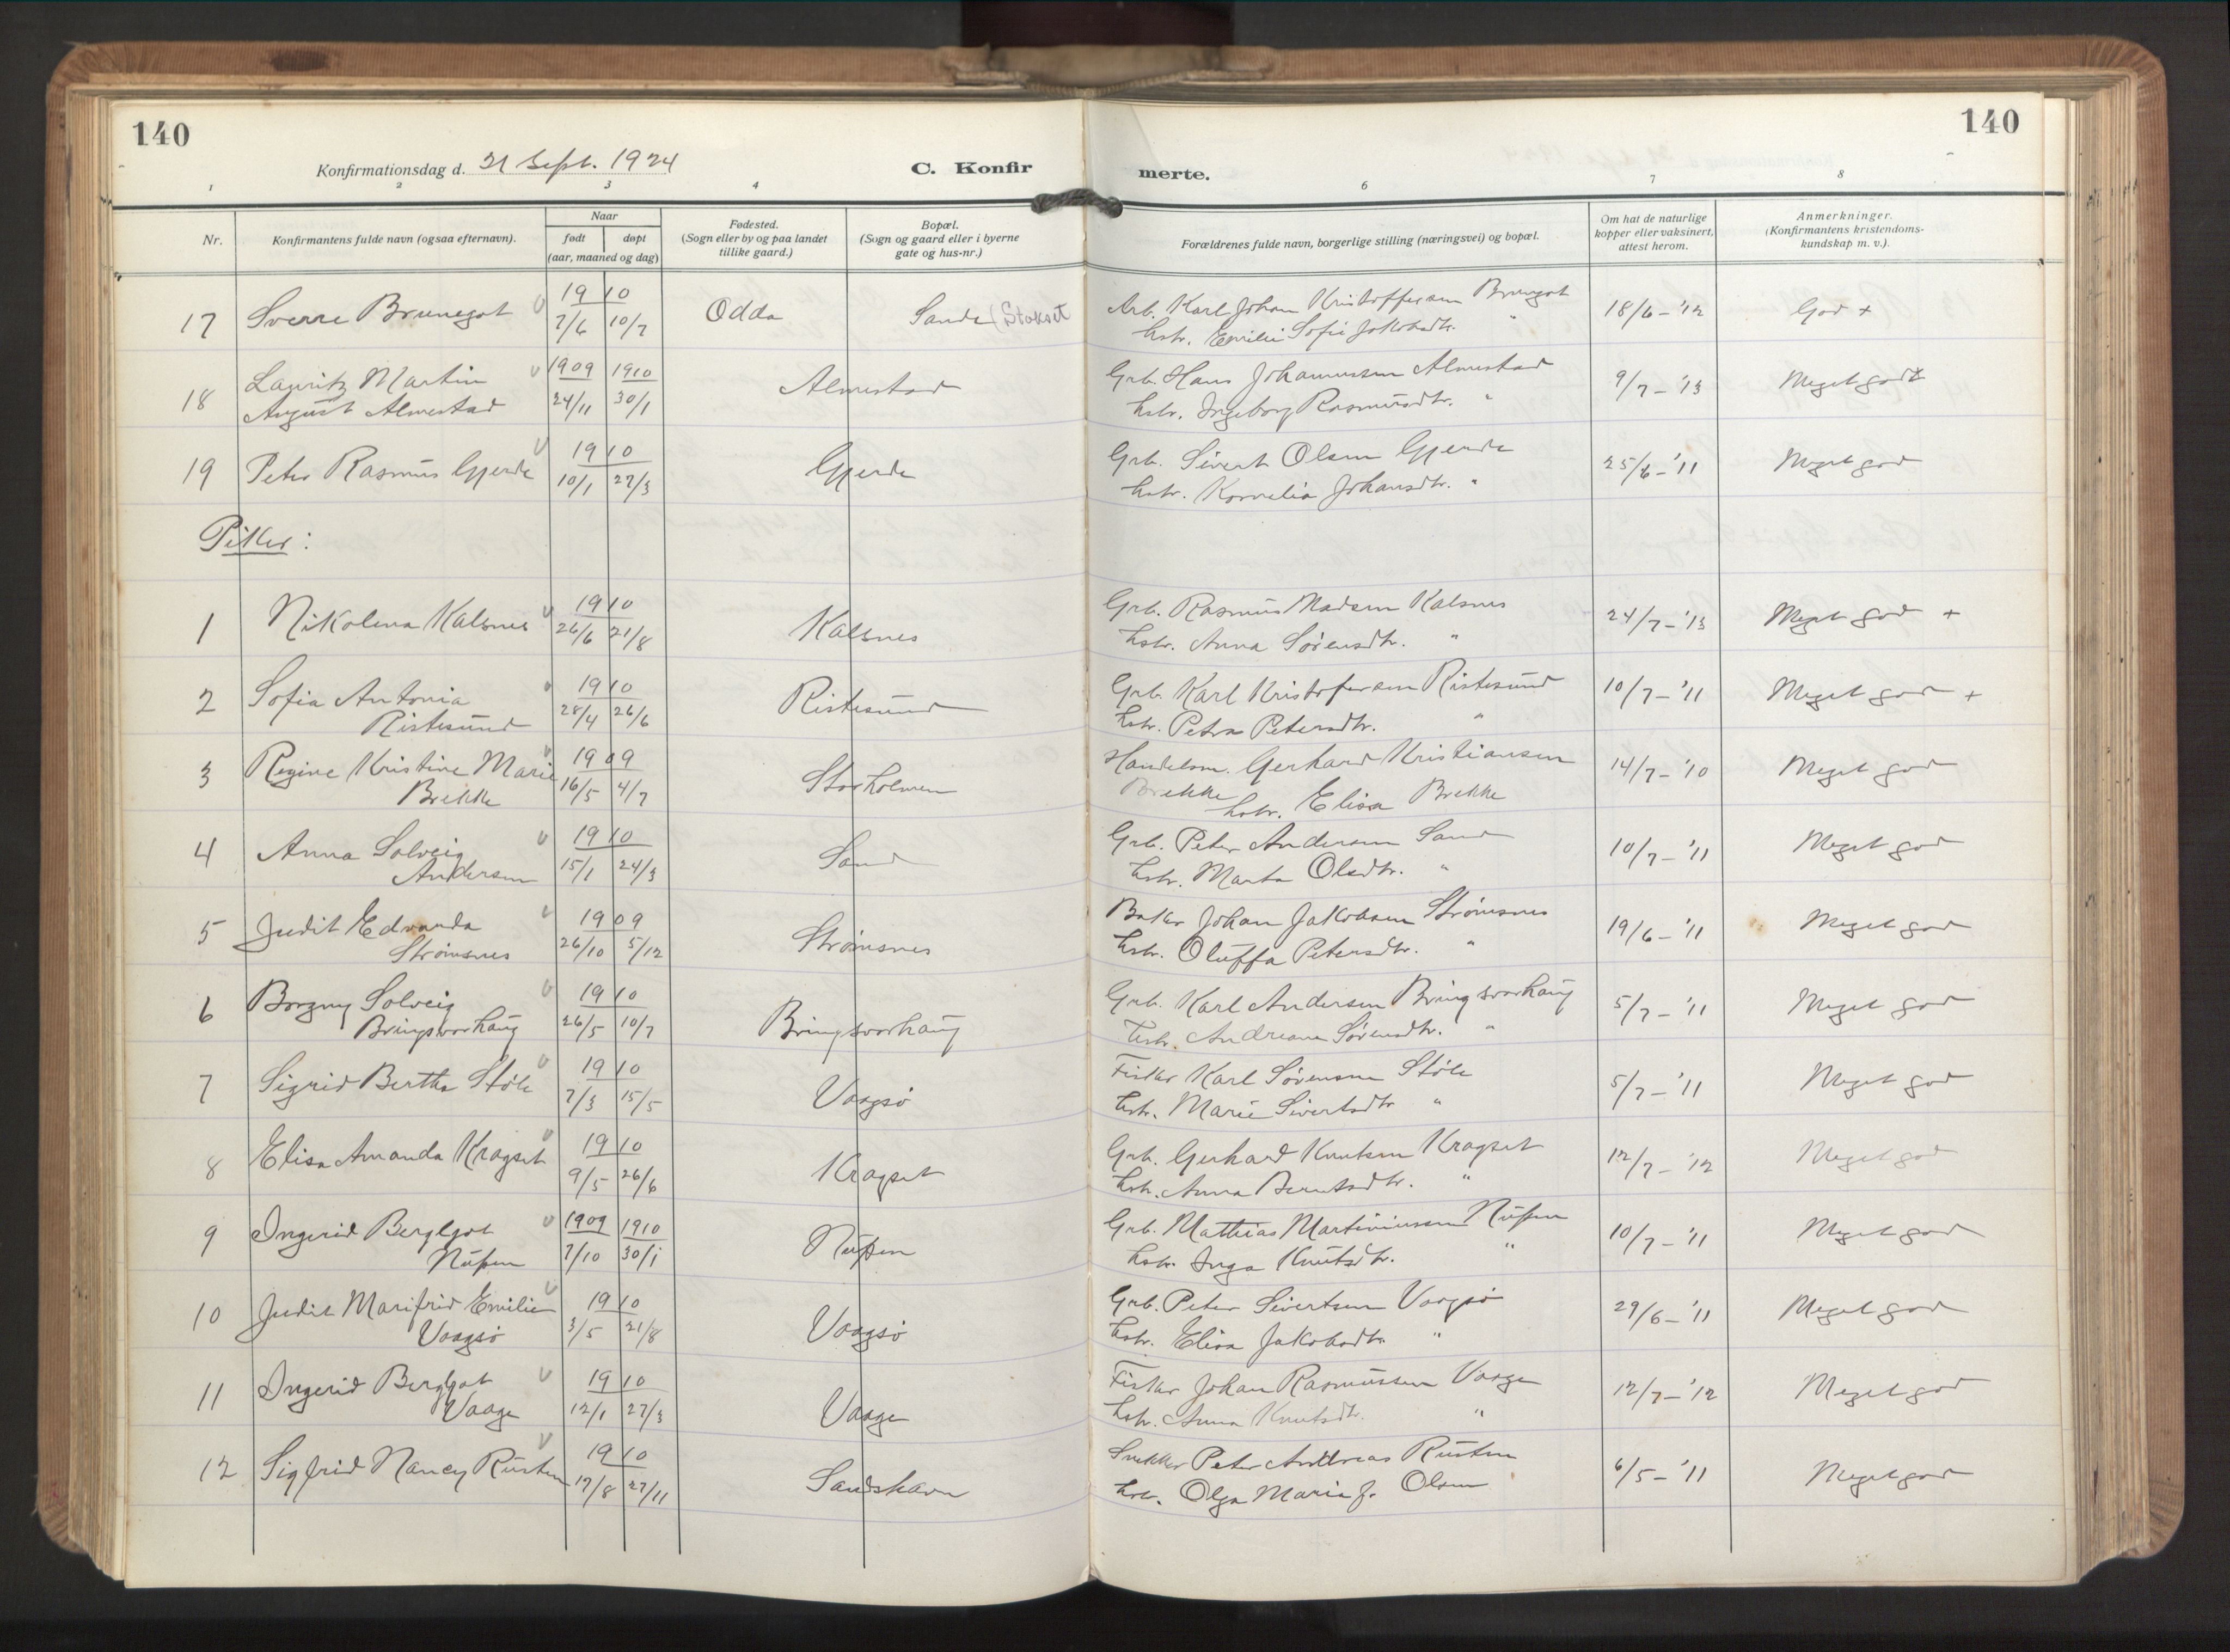 140
140
Konfirmationsdag d. 21 Sept. 1924
C. Konfir
merte.
1 2 3 4 6 7 8
Nr.
Konfirmantens fulde navn (ogsaa efternavn).
Naar
født døpt
(aar, maaned og dag)
Fødested.
(Sogn eller by og paa landet
tillike gaard.)
Bopæl.
(Sogn og gaard eller i byerne
gate og hus-nr.)
Forældrenes fulde navn, borgerlige stilling (næringsvei) og bopæl.
Om hat de naturlige
kopper eller vaksinert,
attest herom.
Anmerkninger.
(Konfirmantens kristendoms-
kundskap m. v.).
17 Sverre Brunegot 1910 7/6 10/7 Odda Sande (Stokset Arb. Karl Johan Kristoffersen Brunegot 18/6-'12 God +
hstr. Emilie Sofie Jakobsdtr. "
18 Lauritz Martin 1909 1910 Almestad Grb. Hans Johannessen Almestad 9/7-'13 Meget godt
August Almestad 24/11 30/1 hstr. Ingeborg Rasmusdtr. "
19 Peter Rasmus Gjerde 1910 10/1 27/3 Gjerde Grb. Sivert Olsen Gjerde 25/6-'11 Meget god
hstr. Kornelia Johansdtr. "
Piker:
1 Nikolena Kalsnes 1910 26/6 21/8 Kalsnes Grb. Rasmus Madsen Kalsnes 24/7-'13 Meget god +
hstr. Anna Sørensdtr. "
2 Sofia Antonia 1910 Ristesund Grb. Karl Kristofersen Ristesund 10/7-'11 Meget god +
Ristesund 28/4 26/6 hstr. Petra Petersdtr. "
3 Regine Kristine Marie 1909 Storholmen Handelsm. Gerhard Kristiansen 14/7-'10 Meget god
Brekke 16/5 4/7 Brekke hstr. Elisa Brekke
4 Anna Solveig 1910 Sand Grb. Peter Andersen Sand 10/7-'11 Meget god
Andersen 15/1 24/3 hstr. Marta Olsdtr. "
5 Judit Edvarda 1909 Strømsnes Baker Johan Jakobsen Strømsnes 19/6-'11 Meget god
Strømsnes 26/10 5/12 hstr. Oluffa Petersdtr. "
6 Borgny Solveig 1910 Bringsvorhaug Grb. Karl Andersen Bringsvorhaug 5/7-'11 Meget god
Bringsvorhaug 26/5 10/7 hstr. Andreane Sørensdtr. "
7 Sigrid Bertha Støle 1910 7/3 15/5 Vaagsø Fisker Karl Sørensen Støle 5/7-'11 Meget god
hstr. Marie Sivertsdtr "
8 Elisa Amanda Kragset 1910 9/5 26/6 Kragset Grb. Gerhard Knutsen Kragset 12/7-'12 Meget god
hstr. Anna Berntsdtr. "
9 Ingerid Bergljot 1909 1910 Nupen Grb. Mathias Martiniussen Nupen 10/7-'11 Meget god
Nupen 7/10 30/1 hstr. Inga Knutsdtr. "
10 Judit Marifrid Emilie 1910 Vaagsø Grb. Peter Sivertsen Vaagsø 29/6-'11 Meget god
Vaagsø 3/5 21/8 hstr. Elisa Jakobsdtr. "
11 Ingerid Bergljot 1910 Vaage Fisker Johan Rasmussen Vaage 12/7-'12 Meget god
Vaage 12/1 27/3 hstr. Anna Knutsdtr. "
12 Sigfrid Nancy Rusten 1910 17/8 27/11 Sandshavn Snekker Peter Andreas Rusten 6/5-'11 Meget god
hstr. Olga Marie f. Olsen